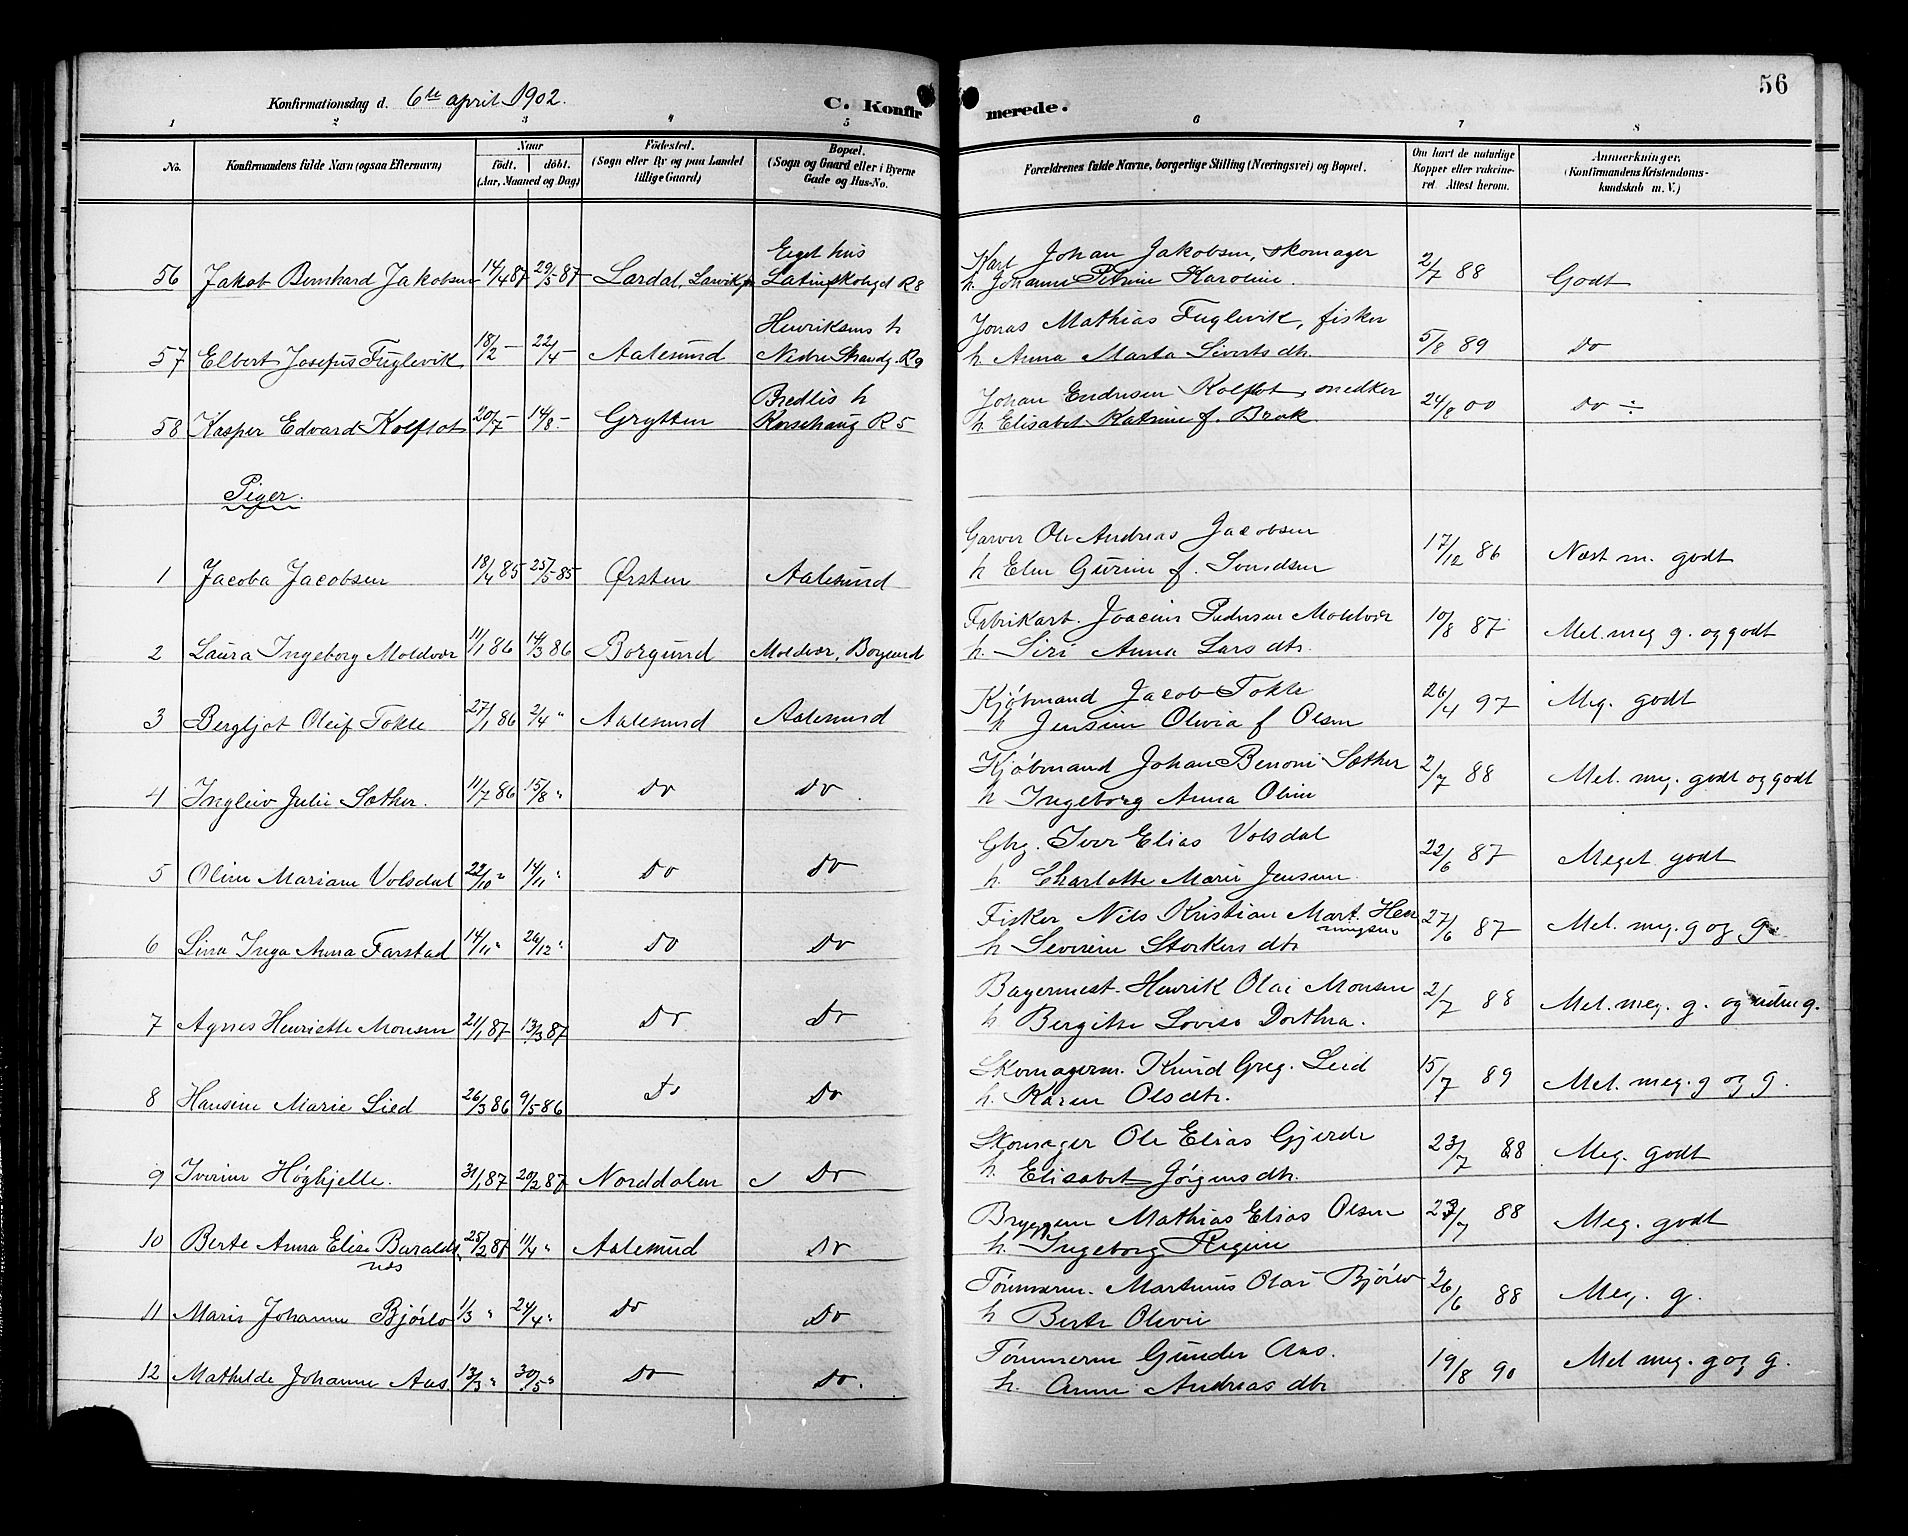 56
Konfirmationsdag d. 6te april 1902.
C. Konfirmerede.
1 2 3 4 5 6 7 8
No.
Konfirmandens fulde Navn (ogsaa Efternavn)
Naar
födt. döbt.
(Aar, Maaned og Dag)
Födested.
(Sogn eller By og paa Landet
tillige Gaard)
Bopæl.
(Sogn og Gaard eller i Byerne
Gade og Hus-No.
Forældrenes fulde Navne, borgerlige Stilling (Næringsvei) og Bopæl.
Om havt de naturlige
Kopper eller vakcine-
ret. Attest herom.
Anmerkninger.
(Konfirmandens Kristendoms-
kundskab m. V.)
Eget hus
Karl Johan Jakobsen, skomager
56 Jakob Bernhard Jakobsen 14/4 87 29/5 87 Lardal, Larvik Latinskolegd R8 h. Johanne Petrine Karoline. 2/7 88 Godt
Henriksens h
Jonas Mathias Fuglevik, fisker
57 Elbert Josefus Fuglevik 18/2 — 22/4 — Aalesund Nedre Strandg. R9 h. Anna Marta Siverts dtr. 5/8 89 Do
Bredlis h
Johan Endresen Kolflot, snedker
58 Kasper Edvard Kolflot 20/7 — 14/8 — Grytten Korsehaug R5 h. Elisabet Katrine f. Brak 24/8 00 Do ÷
Piger.
Garver Ole Andreas Jacobsen
1 Jacoba Jacobsen 18/4 85 25/5 85 Ørsten Aalesund h Elen Gurine f. Sondsen 17/12 86 Næst m. godt
Fabrikarb. Joacim Pedersen Moldvær
2 Laura Ingeborg Moldvær 11/1 86 14/3 86 Borgund Moldvær, Borgund h. Siri Anna Lars dtr. 10/8 87 Mel. meg g. og godt
Kjøbmand Jacob Tokle
3 Bergljot Oleif Tokle 27/1 86 2/4 " Aalesund Aalesund h Jensine Olivia f Olsen 26/4 97 Meg. godt
Kjøbmand Johan Benoni Sæther
4 Ingleiv Julie Sæther. 11/7 86 15/8 " Do Do h Ingeborg Anna Oline 2/7 88 Mel. meg. godt og godt
Gbg. Iver Elias Volsdal
5 Oline Mariane Volsdal 22/10 " 14/11 " Do Do h. Charlotte Marie Jensen 22/6 87 Meget godt
Fisker Nils Kristian Mart. Hen
ningsen
6 Lina Inga Anna Farstad 14/11 " 26/12 " Do Do h Severine Storkers dtr 27/6 87 Mel. meg. g og g.
Bagermest. Henrik Olai Monsen
7 Agnes Henriette Monsen 21/1 87 13/3 87 Do Do h Bergitte Lovise Dorthea. 2/7 88 Mel. meg. g. og g.
Skomagerm. Knud Greg. Lied
8 Hansine Marie Lied 26/3 86 9/5 86 Do Do h. Karen Olsdtr. 15/7 89 Mel. meg. g og g.
Skomager Ole Elias Gjerde
9 Iverine Høghjelle. 31/1 87 20/2 87 Norddalen Do h Elisabet Jørgens dtr. 23/7 88 Meg. godt
Bryggem Mathias Elias Olsen
10 Berte Anna Elise Baralds 25/2 87 11/4 " Aalesund Do h. Ingeborg Regine 23/7 88 Meg. godt
nes
Tømmerm. Martinus Olai Bjørlo
11 Marie Johanne Bjørlo 1/3 " 24/4 " Do Do h Berte Olivie 26/6 88 Meg. g.
Tømmerm Gunder Aas.
12 Mathilde Johanne Aas 13/3 " 30/5 " Do Do. h. Anne Andreas dtr 19/8 90 Mel meg. g og g.